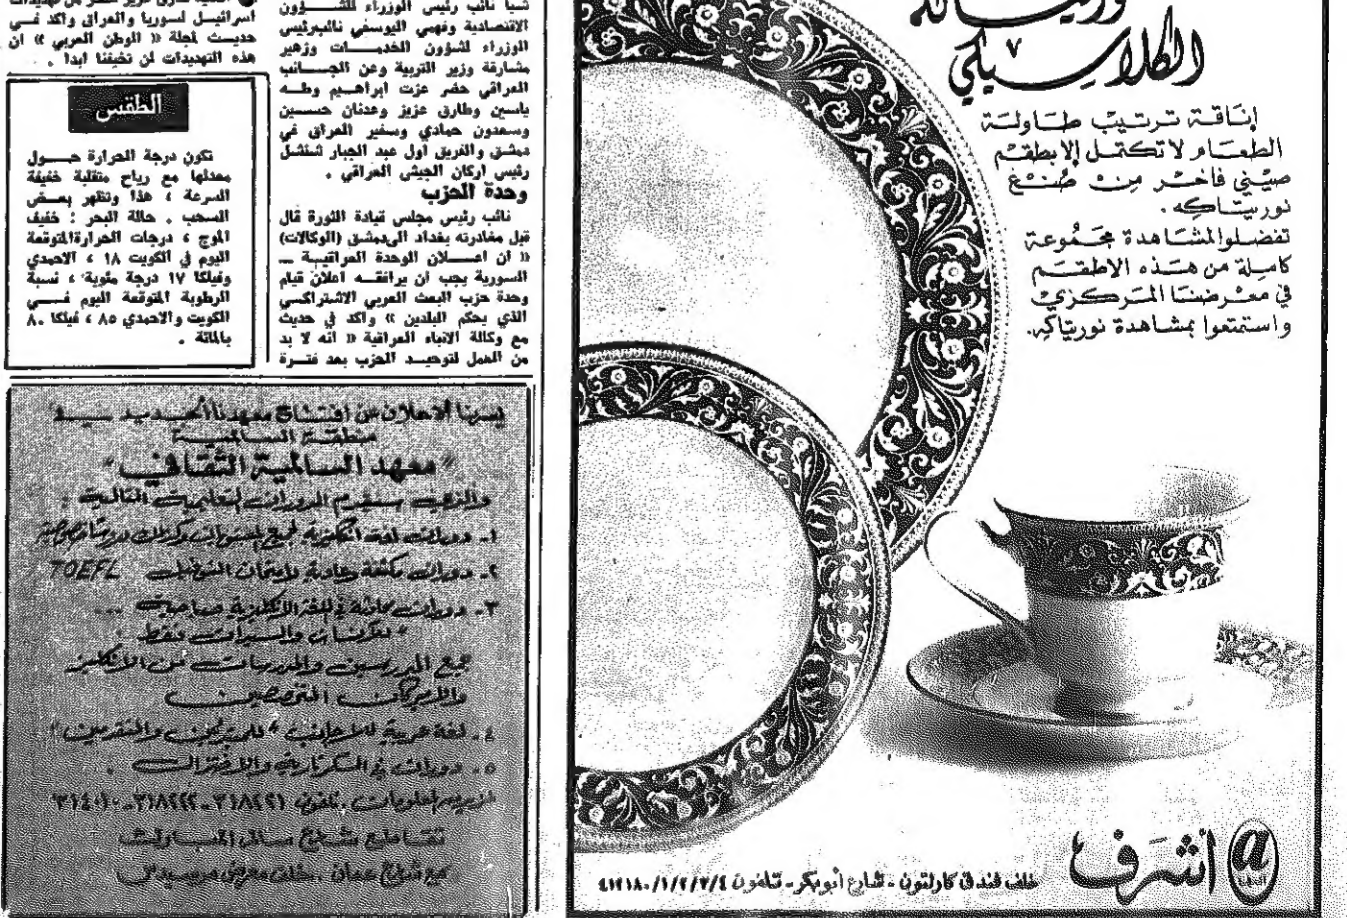 الكلاسيكي
إناقة ترتيب طاولة
الطعام لا تكتمل إلا بطقم
صيني فاخر من صنع
نوريتاكه .
تفضلوا لمشاهدة مجموعة
كاملة من هذه الاطقم
في معرضنا المركزي
واستمتعوا بمشاهدة نوريتاكه.
أشرف
خلف فندق كارلتون - شارع أبو بكر - تلفون ٤١٢١٨٠/١/٢/٣/٤
نائب رئيس الوزراء للشؤون
الاقتصادية وفهمي اليوسفي نائب رئيس
الوزراء لشؤون الخدمات وزهير
مشارقة وزير التربية وعن الجانب
العراقي حضر عزت ابراهيم وطه
ياسين وطارق عزيز وعدنان حسين
وسعدون حمادي وسفير العراق في
دمشق والفريق اول عبد الجبار شنشل
رئيس اركان الجيش العراقي .
وحدة الحزب
نائب رئيس مجلس قيادة الثورة قال
قبل مغادرته بغداد الى دمشق (الوكالات)
« ان اعلان الوحدة العراقية ــ
السورية يجب ان يرافقه اعلان قيام
وحدة حزب البعث العربي الاشتراكسي
الذي يحكم البلدين » واكد في حديث
مع وكالة الانباء العراقية « انه لا بد
من العمل لتوحيد الحزب بعد فترة
اسرائيل لسوريا والعراق واكد في
حديث لمجلة « الوطن العربي » ان
هذه التهديدات لن تخيفنا ابدا .
الطقس
تكون درجة الحرارة حول
معدلها مع رياح متقلبة خفيفة
السرعة ، هذا وتظهر بعض
السحب . حالة البحر : خفيف
الموج ، درجات الحرارة المتوقعة
اليوم في الكويت ١٨ ، الاحمدي
وفيلكا ١٧ درجة مئوية ، نسبة
الرطوبة المتوقعة اليوم في
الكويت والاحمدي ٨٥ ، فيلكا ٨٠
بالمائة .
يسرنا الاعلان عن افتتاح معهدنا الجديد في
منطقة السالمية
"معهد السالمية الثقافي"
والذي سيقدم الدورات التعليمية التالية :
١- دورات لغة انكليزية لجميع المستويات وكذلك دروسا خصوصية
٢- دورات مكثفة وعادية لامتحان التوفيل TOEFL
٣- دورات محادثة في اللغة الانكليزية صباحية ...
والسيدات فقط .
جميع المدرسين والمدرسات من الانكليز
والامريكان المتخصصين
٤- لغة عربية للاجانب "للمبتدئين والمتقدمين"
٥- دورات في السكرتارية والاختزال .
لمزيد من المعلومات . تلفون ٣١٨٤٢١ - ٣١٨٢٢٢ - ٣١٤٠١٠
تقاطع شارع سالم المبارك
مع شارع عمان . خلف معرض مرسيدس